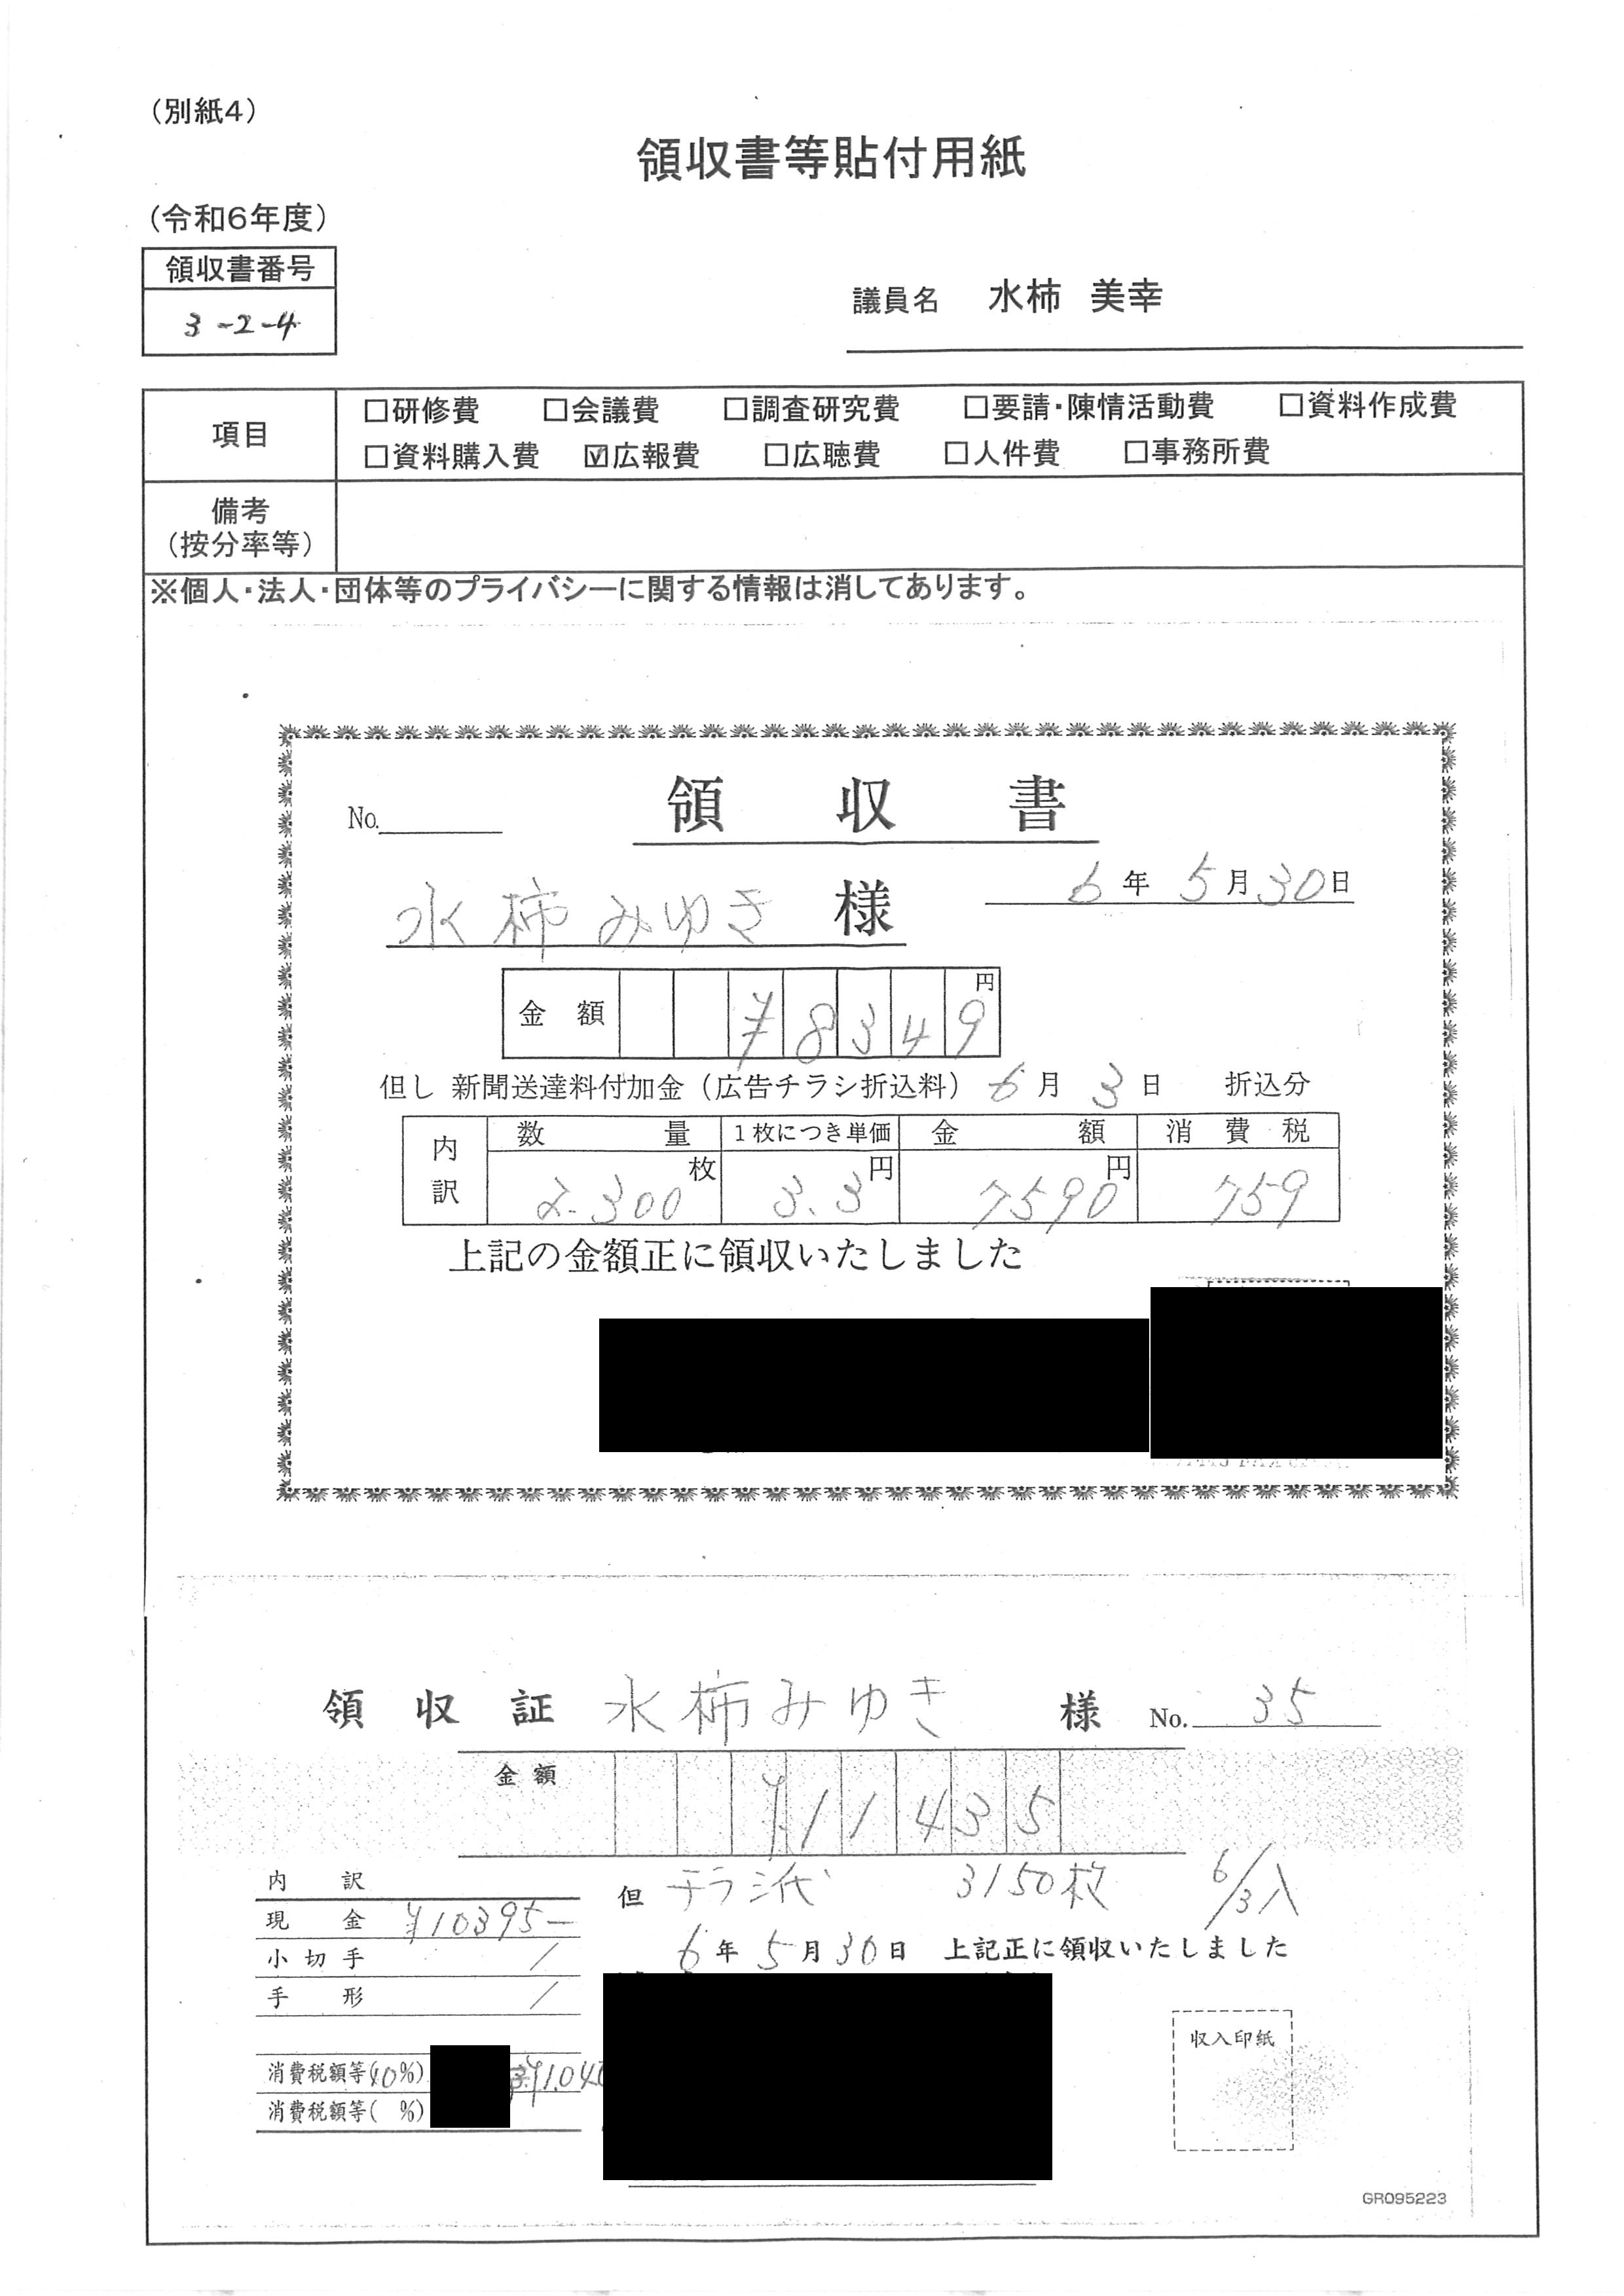 （別紙4）
領収書等貼付用紙
（令和6年度）
領収書番号
3-2-4
議員名 水柿 美幸
項目
□研修費 □会議費 □調査研究費 □要請・陳情活動費 □資料作成費
□資料購入費 ☑広報費 □広聴費 □人件費 □事務所費
備考
（按分率等）
※個人・法人・団体等のプライバシーに関する情報は消してあります。
No. 領収書
6年5月30日
水柿みゆき 様
金額 ¥8349円
但し 新聞送達料付加金（広告チラシ折込料）6月3日 折込分
内訳 数量 1枚につき単価 金額 消費税
2.300枚 3.3円 7590円 759
上記の金額正に領収いたしました
領収証 水柿みゆき 様 No. 35
金額 ¥11435
内訳
但 チラシ代 3150枚 6/3入
現金 ¥10395-
6年5月30日 上記正に領収いたしました
小切手 /
手形 /
収入印紙
消費税額等(10%) ¥1.040
消費税額等( %)
GR095223